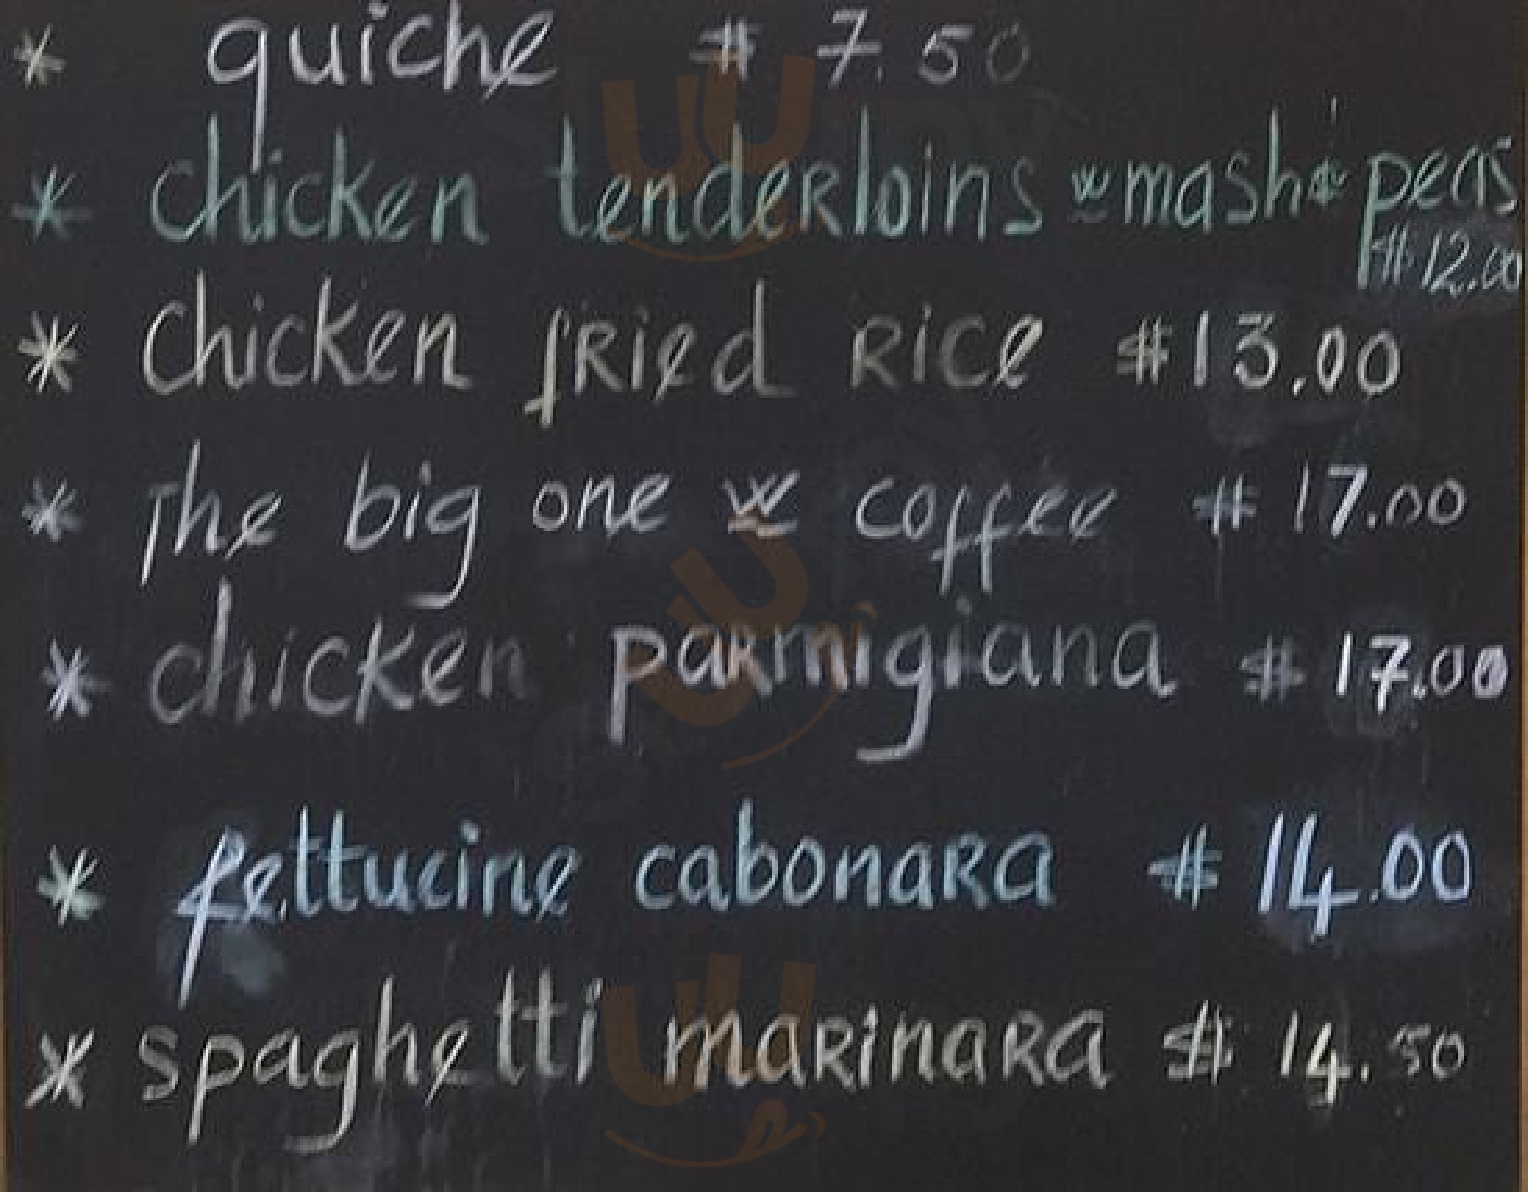 * quiche $ 7.50
* chicken tenderloins w mash & peas
$ 12.00
* chicken fried rice $ 13.00
* The big one w coffee $ 17.00
* chicken parmigiana $ 17.00
* fettucine cabonara $ 14.00
* spaghetti marinara $ 14.50